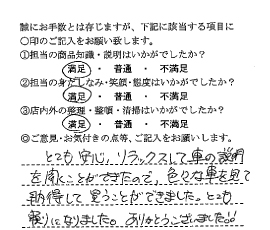 誠にお手数とは存じますが、下記に該当する項目に
○印のご記入をお願い致します。
①担当の商品知識・説明はいかがでしたか？
満足 ・ 普通 ・ 不満足
②担当の身だしなみ・笑顔・態度はいかがでしたか？
満足 ・ 普通 ・ 不満足
③店内外の整理・整頓・清掃はいかがでしたか？
満足 ・ 普通 ・ 不満足
◎ご意見・お気付きの点等、ご記入をお願いします。
とても安心、リラックスして車の説明
を聞くことができたので、色々な車を見て
納得して買うことができました。とても
頼りになりました。ありがとうございました!!